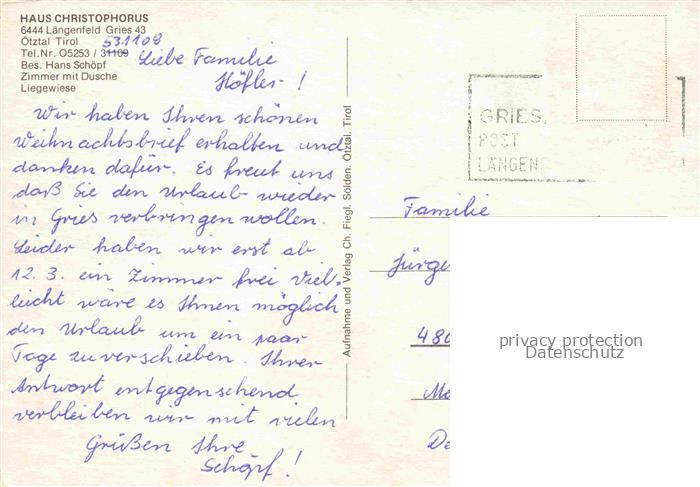 HAUS CHRISTOPHORUS
6444 Längenfeld Gries 43
Ötztal Tirol
Tel. Nr. O5253 / 31109
531109
Bes. Hans Schöpf
Zimmer mit Dusche
Liegewiese
Liebe Familie
Höfler!
Wir haben Ihren schönen
Weihnachtsbrief erhalten und
danken dafür. Es freut uns
daß Sie den Urlaub wieder
in Gries verbringen wollen.
Leider haben wir erst ab
12. 3. ein Zimmer frei Viel-
leicht wäre es Ihnen möglich
den Urlaub um ein paar
Tage zu verschieben. Ihrer
Antwort entgegensehend
verbleiben wir mit vielen
Grüßen Ihre
Schöpf!
Aufnahme und Verlag Ch. Fiegl, Sölden, Ötztal, Tirol
GRIES,
POST
LÄNGENF
Familie
Jürge
480
De
privacy protection
Datenschutz